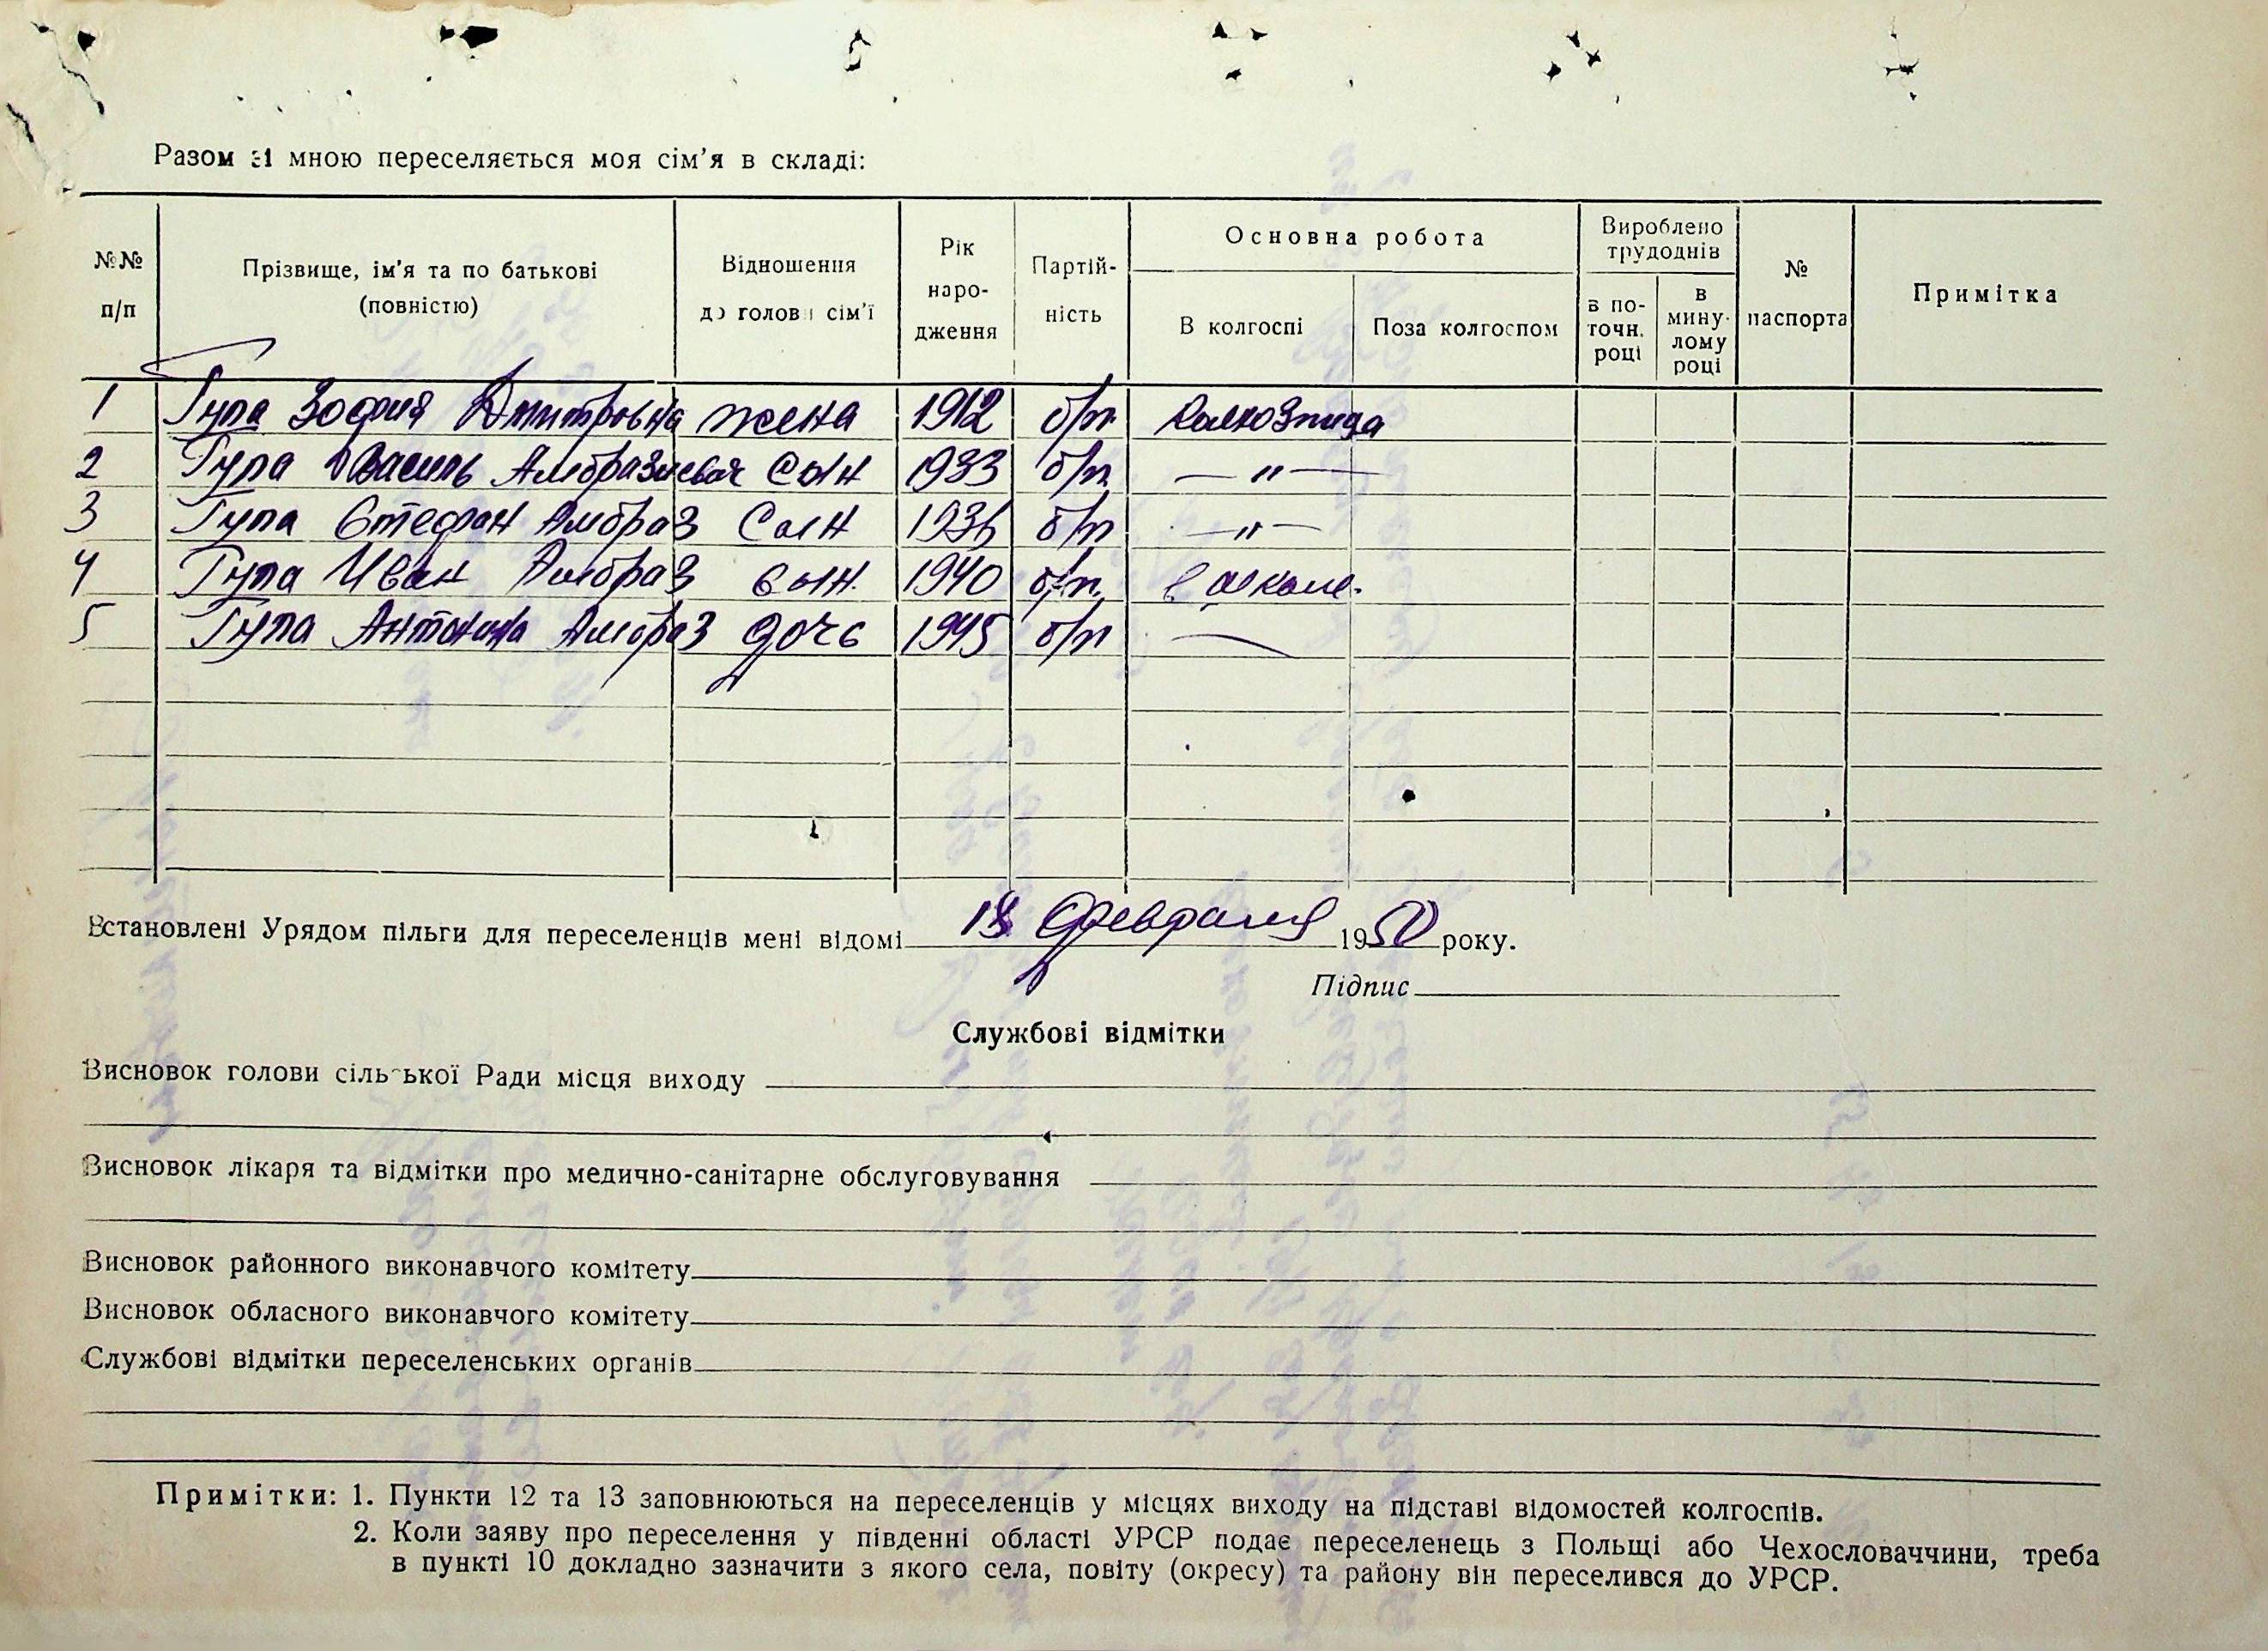 Разом зі мною переселяється моя сім'я в складі:
№№ п/п
Прізвище, ім'я та по батькові (повністю)
Відношення до голови сім'ї
Рік народження
Партійність
Основна робота
В колгоспі
Поза колгоспом
Вироблено трудоднів
в поточн. році
в минулому році
№ паспорта
Примітка
1 Гупа Зофия Дмитровна жена 1912 б/п Колхозница
2 Гупа Василь Амбразиевич Сын 1933 б/п — " —
3 Гупа Стефан Амбраз Сын б/п — " —
4 Гупа Иван Амбраз сын. 1940 б/п. в школе.
5 Гупа Антонина Амбраз дочь 1945 б/п —
Встановлені Урядом пільги для переселенців мені відомі февраля 1950 року.
Підпис
Службові відмітки
Висновок голови сільської Ради місця виходу
Висновок лікаря та відмітки про медично-санітарне обслуговування
Висновок районного виконавчого комітету
Висновок обласного виконавчого комітету
Службові відмітки переселенських органів
Примітки: 1. Пункти 12 та 13 заповнюються на переселенців у місцях виходу на підставі відомостей колгоспів.
2. Коли заяву про переселення у південні області УРСР подає переселенець з Польщі або Чехословаччини, треба
в пункті 10 докладно зазначити з якого села, повіту (окресу) та району він переселився до УРСР.